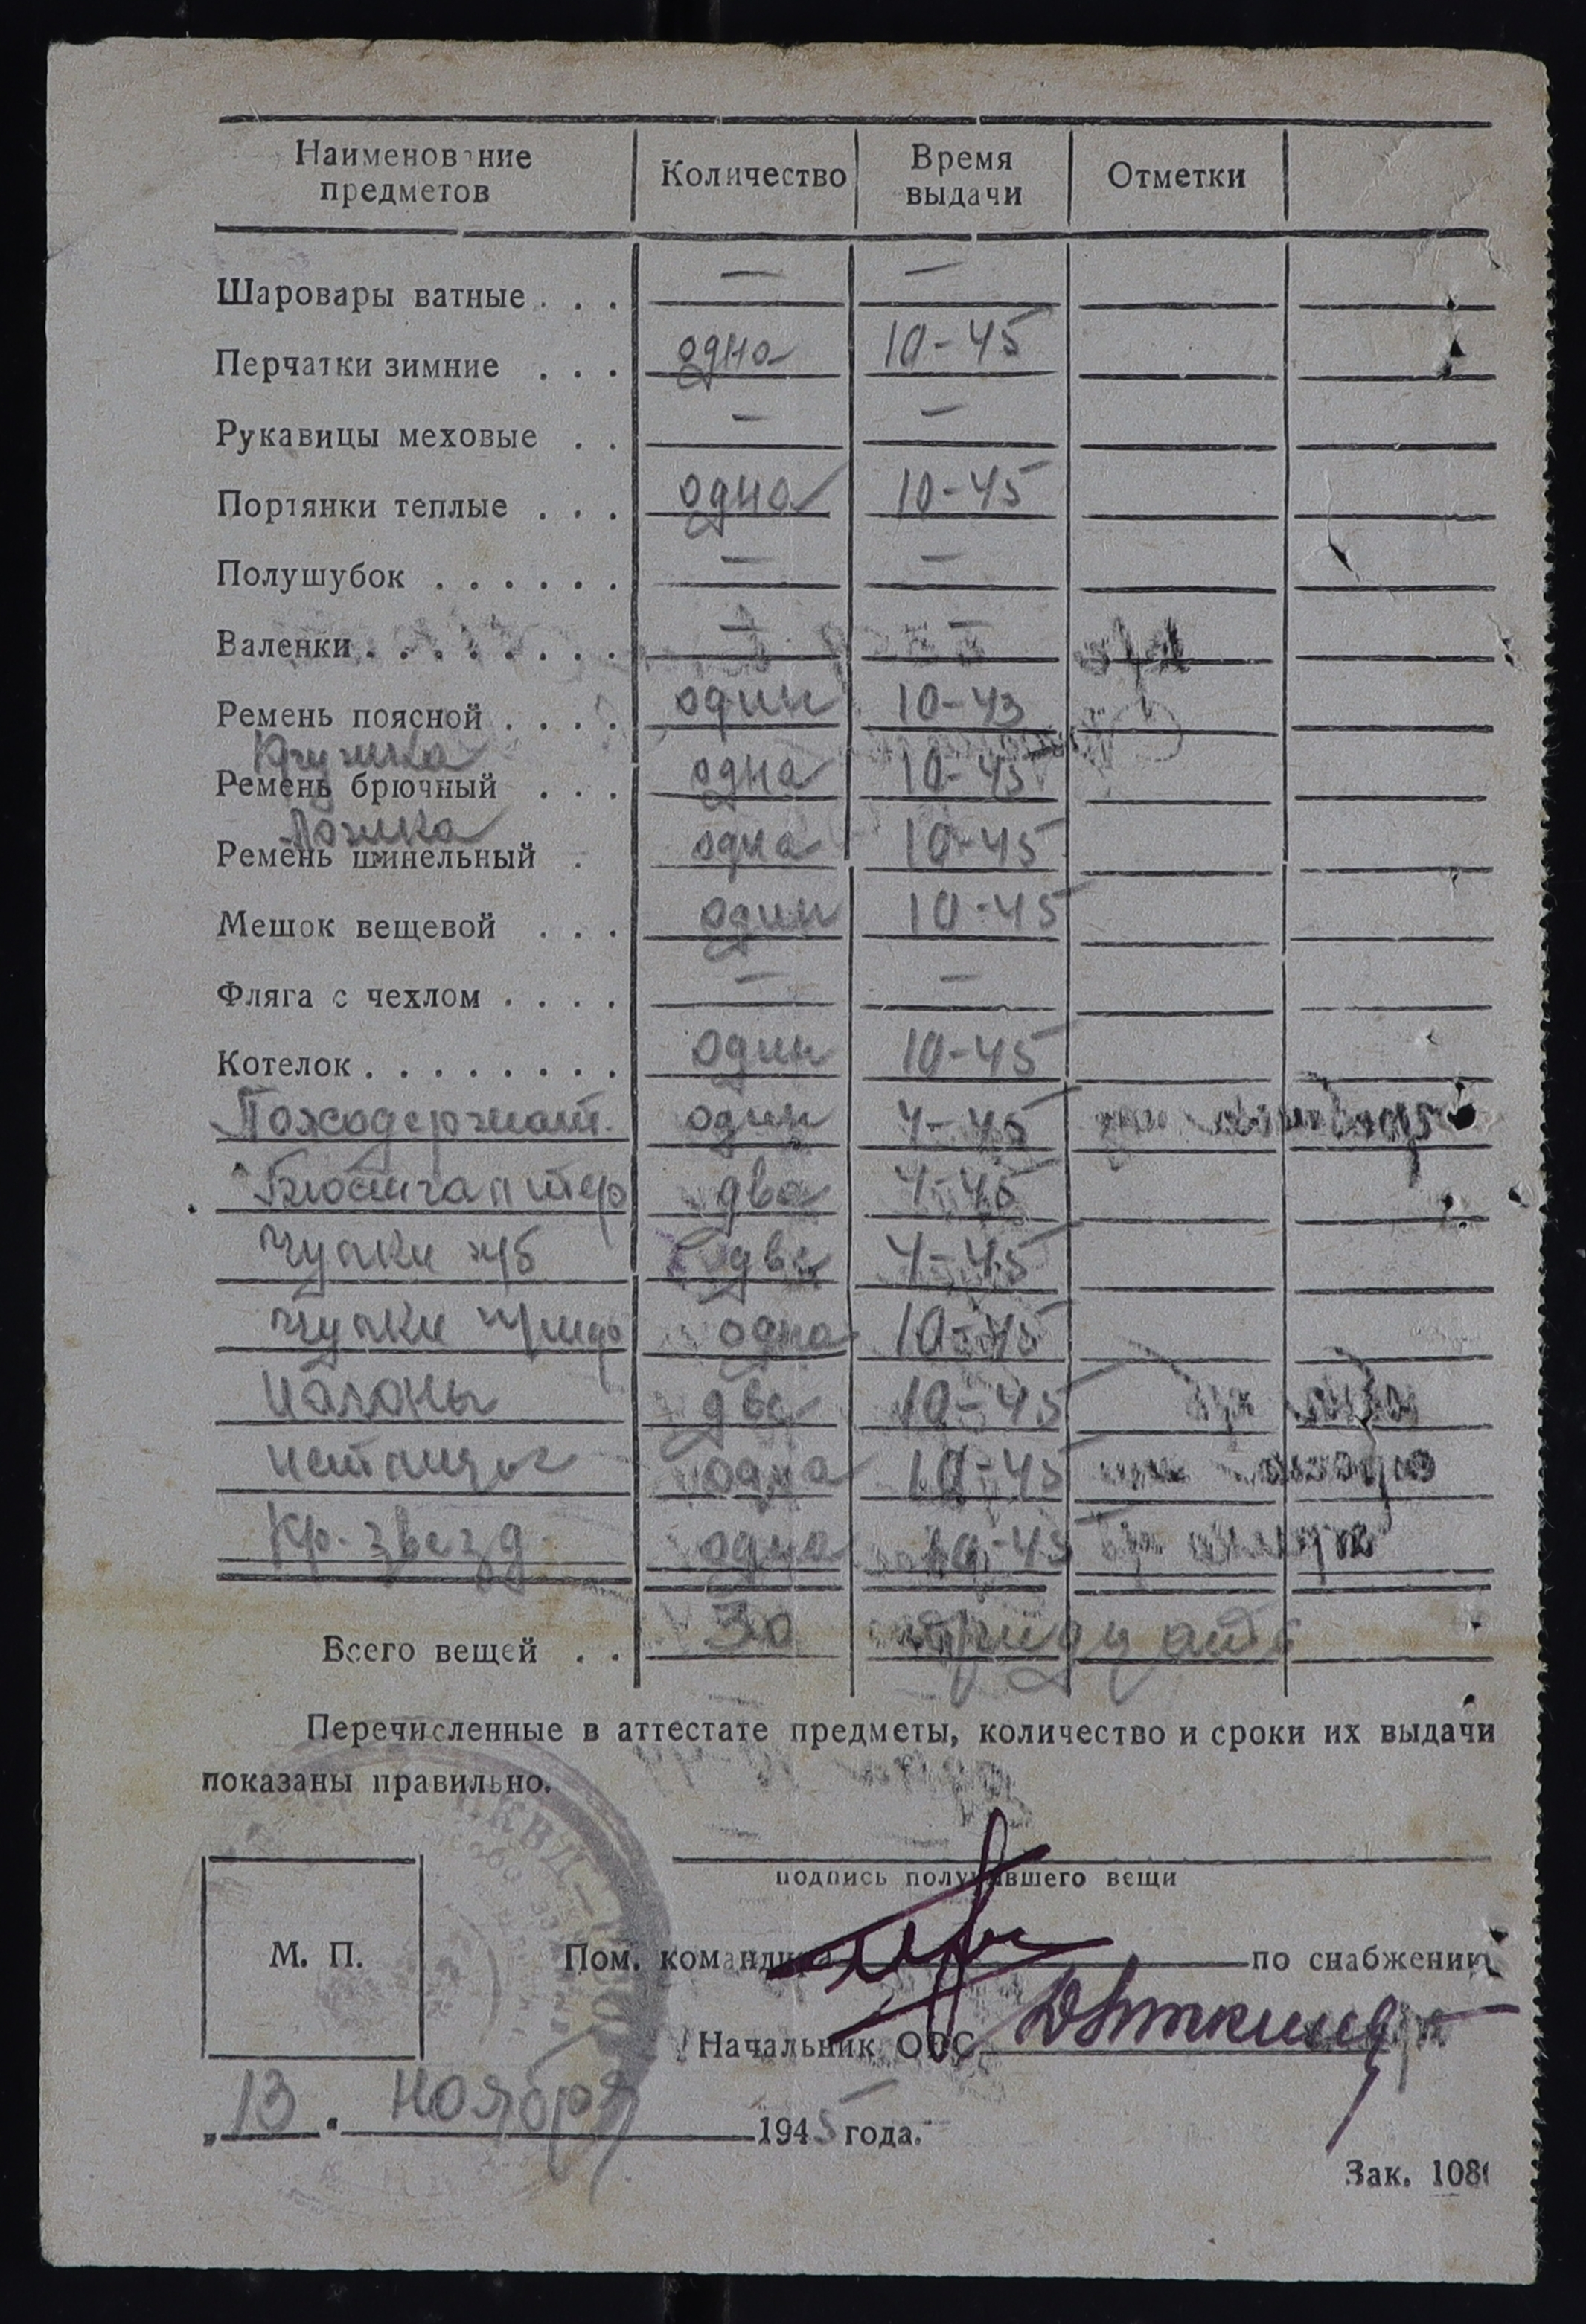 Наименование предметов Количество Время выдачи Отметки
Шаровары ватные . . . — —
Перчатки зимние . . . одна 10-45
Рукавицы меховые . . — —
Портянки теплые . . . одна 10-45
Полушубок . . . . . . — —
Валенки . . . . . . . . — —
Ремень поясной . . . . один 10-43
Кружка
Ремень брючный . . . одна 10-45
Ложка
Ремень шинельный . одна 10-45
Мешок вещевой . . . один 10-45
Фляга с чехлом . . . . — —
Котелок . . . . . . . . один 10-45
один 4-45
Бюстгалтер два 4-45
Чулки х/б две 4-45
Чулки одна 10-45
Погоны две 10-45
одна 10-45
Кр. звезд одна 10-45
Всего вещей . . 30 тридцать
Перечисленные в аттестате предметы, количество и сроки их выдачи
показаны правильно.
подпись получавшего вещи
М. П.
Пом. командира по снабжению
Начальник ОВС
„13" ноября 1945 года.
Зак. 108